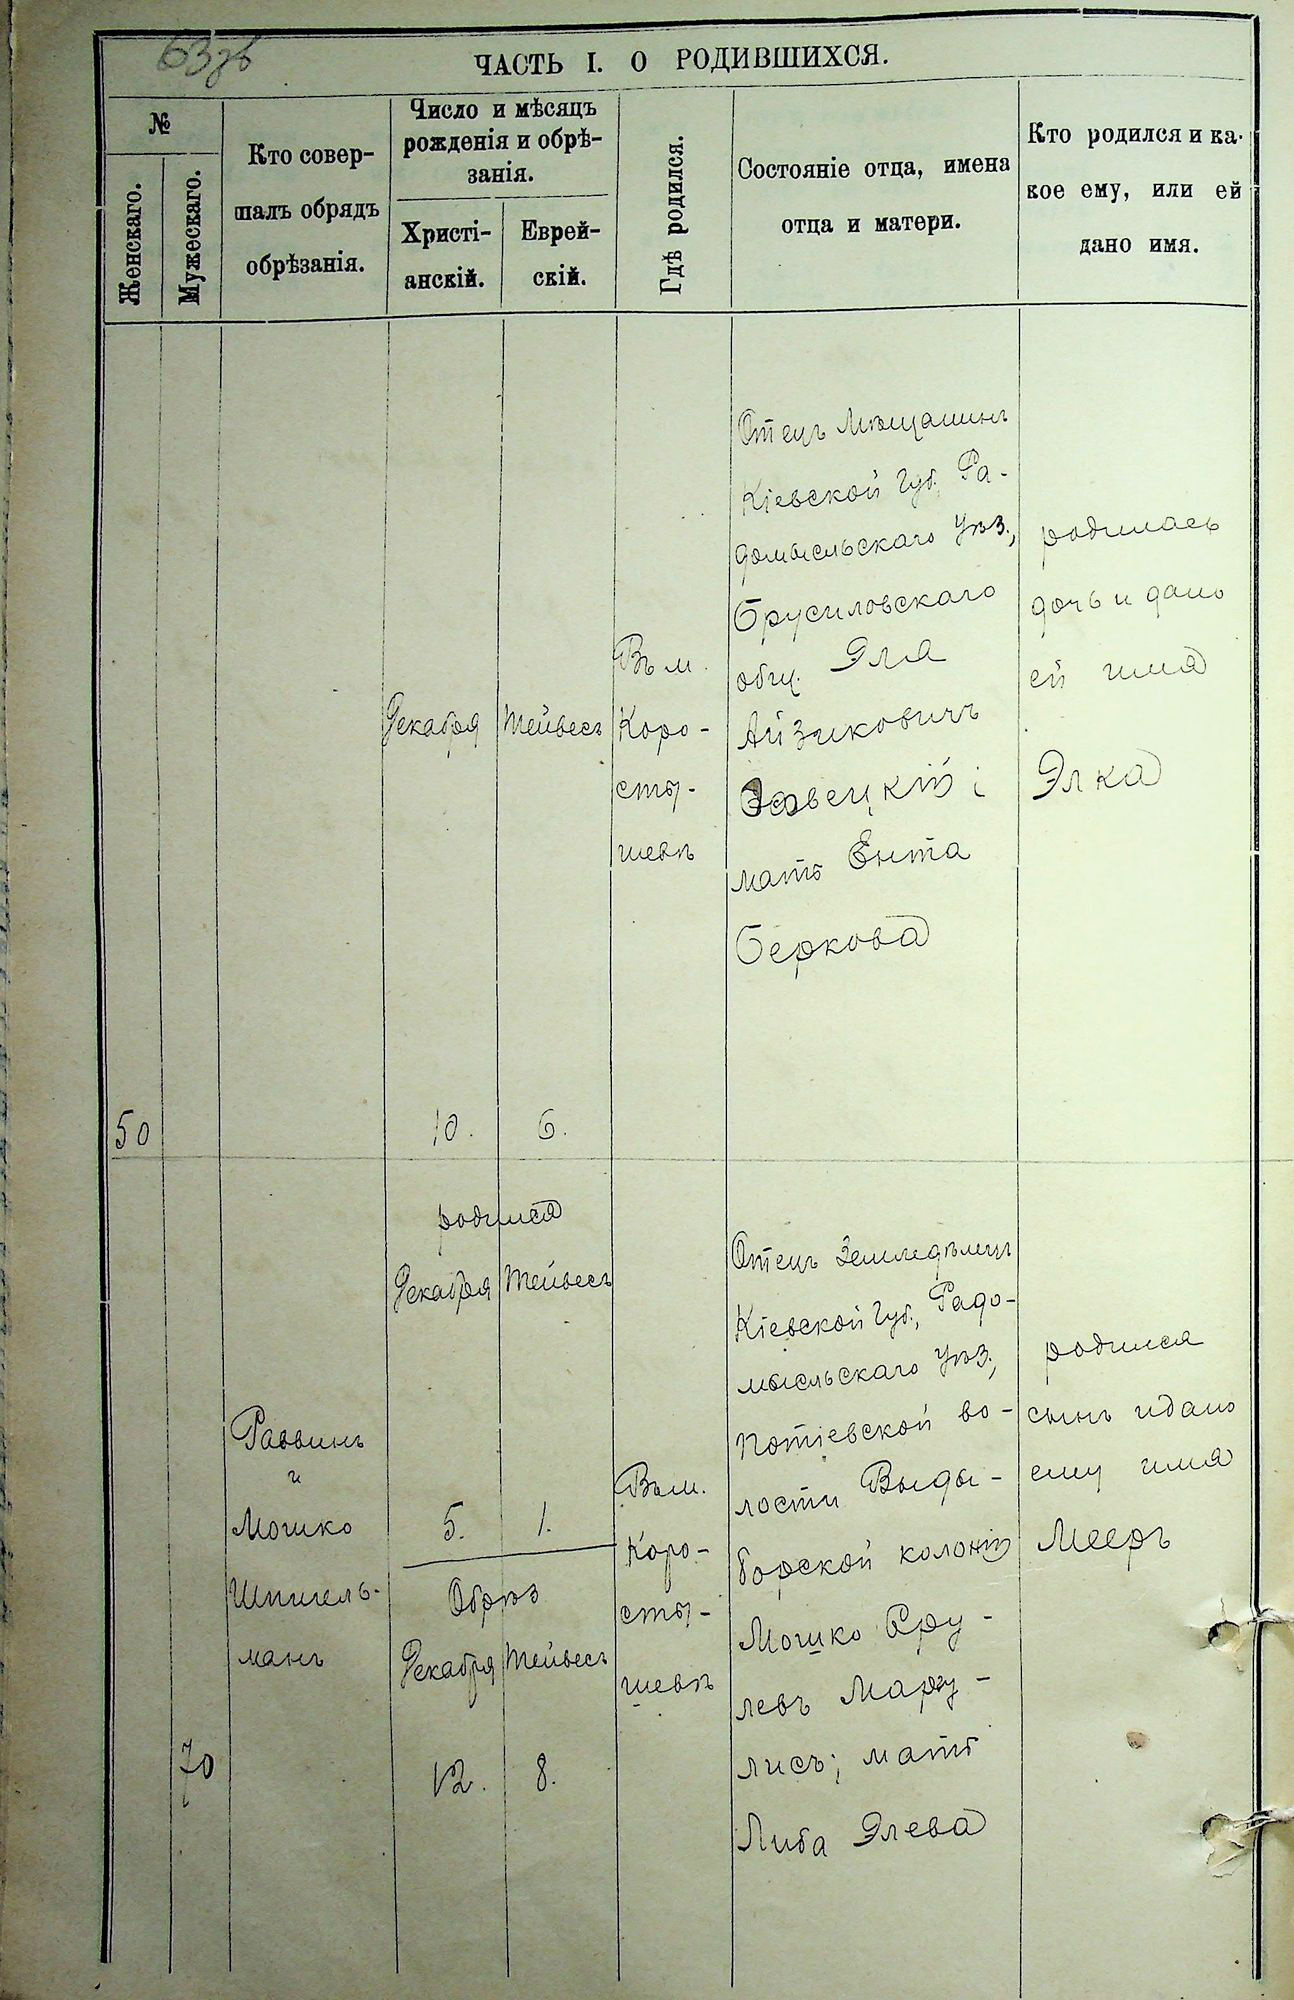 63 зв
ЧАСТЬ I. О РОДИВШИХСЯ.
№
Женскаго.
Мужескаго.
Кто совер-
шалъ обрядъ
обрѣзанія.
Число и мѣсяцъ
рожденія и обрѣ-
занія.
Христі-
анскій.
Еврей-
скій.
Гдѣ родился.
Состояніе отца, имена
отца и матери.
Кто родился и ка-
кое ему, или ей
дано имя.
50
Декабря
10.
Тейвесъ
6.
Въ м.
Коро-
сты-
шевѣ
Отецъ Мѣщанинъ
Кіевской Губ. Ра-
домысльскаго Уѣз.,
Брусиловскаго
общ. Эля
Айзиковичъ
мать Ента
Беркова
родилась
дочь и дано
ей имя
Элка
70
Раввинъ
и
Мошко
Шпигель-
манъ
родился
Декабря Тейвесъ
5. 1.
Обрѣз
Декабря Тейвесъ
12. 8.
Въ м.
Коро-
сты-
шевѣ
Отецъ Земледѣлецъ
Кіевской Губ., Радо-
мысльскаго Уѣз.,
Потіевской во-
лости Выды-
борской колоніи
Мошко Сру-
левъ Маргу-
лисъ; мать
Либа Элева
родился
сынъ и дано
ему имя
Мееръ